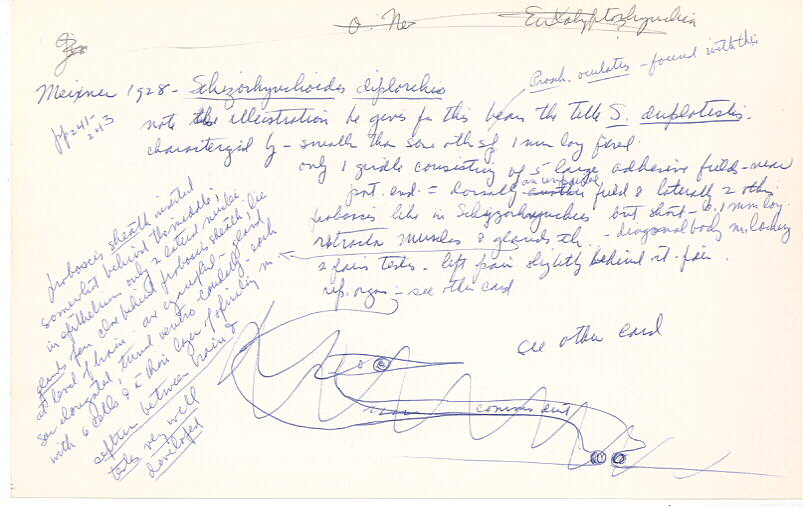 O. Ne
Eukalyptorhynchia
Meixner 1928 - Schizorhynchoides diplorchis
Proch. oculatus - found with this
pp 241-
243
note the illustration he gives for this bears the title S. duplotestis.
characterized by - smaller than some others of 1 mm long fixed
only 1 girdle consisting of 5 large adhesive fields - near
post. end. = dorsally an unpaired field & laterally 2 others
proboscis like in Schizorhynchus but short - 0.1 mm long.
retractor muscles & glands th. - diagonal body m. lacking
2 pairs testes - left pair slightly behind rt. pair.
rep. organ - see other card
proboscis sheath inserted
somewhat behind the middle;
in epithelium only 2 lateral nuclei
glands open close behind proboscis sheath; lie
at level of brain. are gland
elongated, turned ventro caudally - each
with 6 cells & a thin layer of m
septum between brain &
testes very well
developed
see other card
common duct